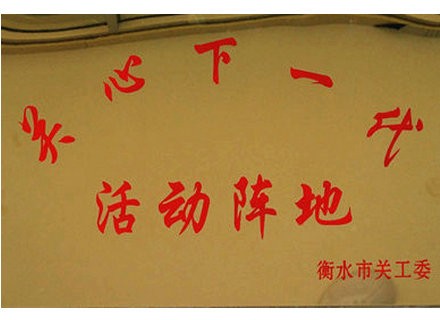 关心下一代
活动阵地
衡水市关工委